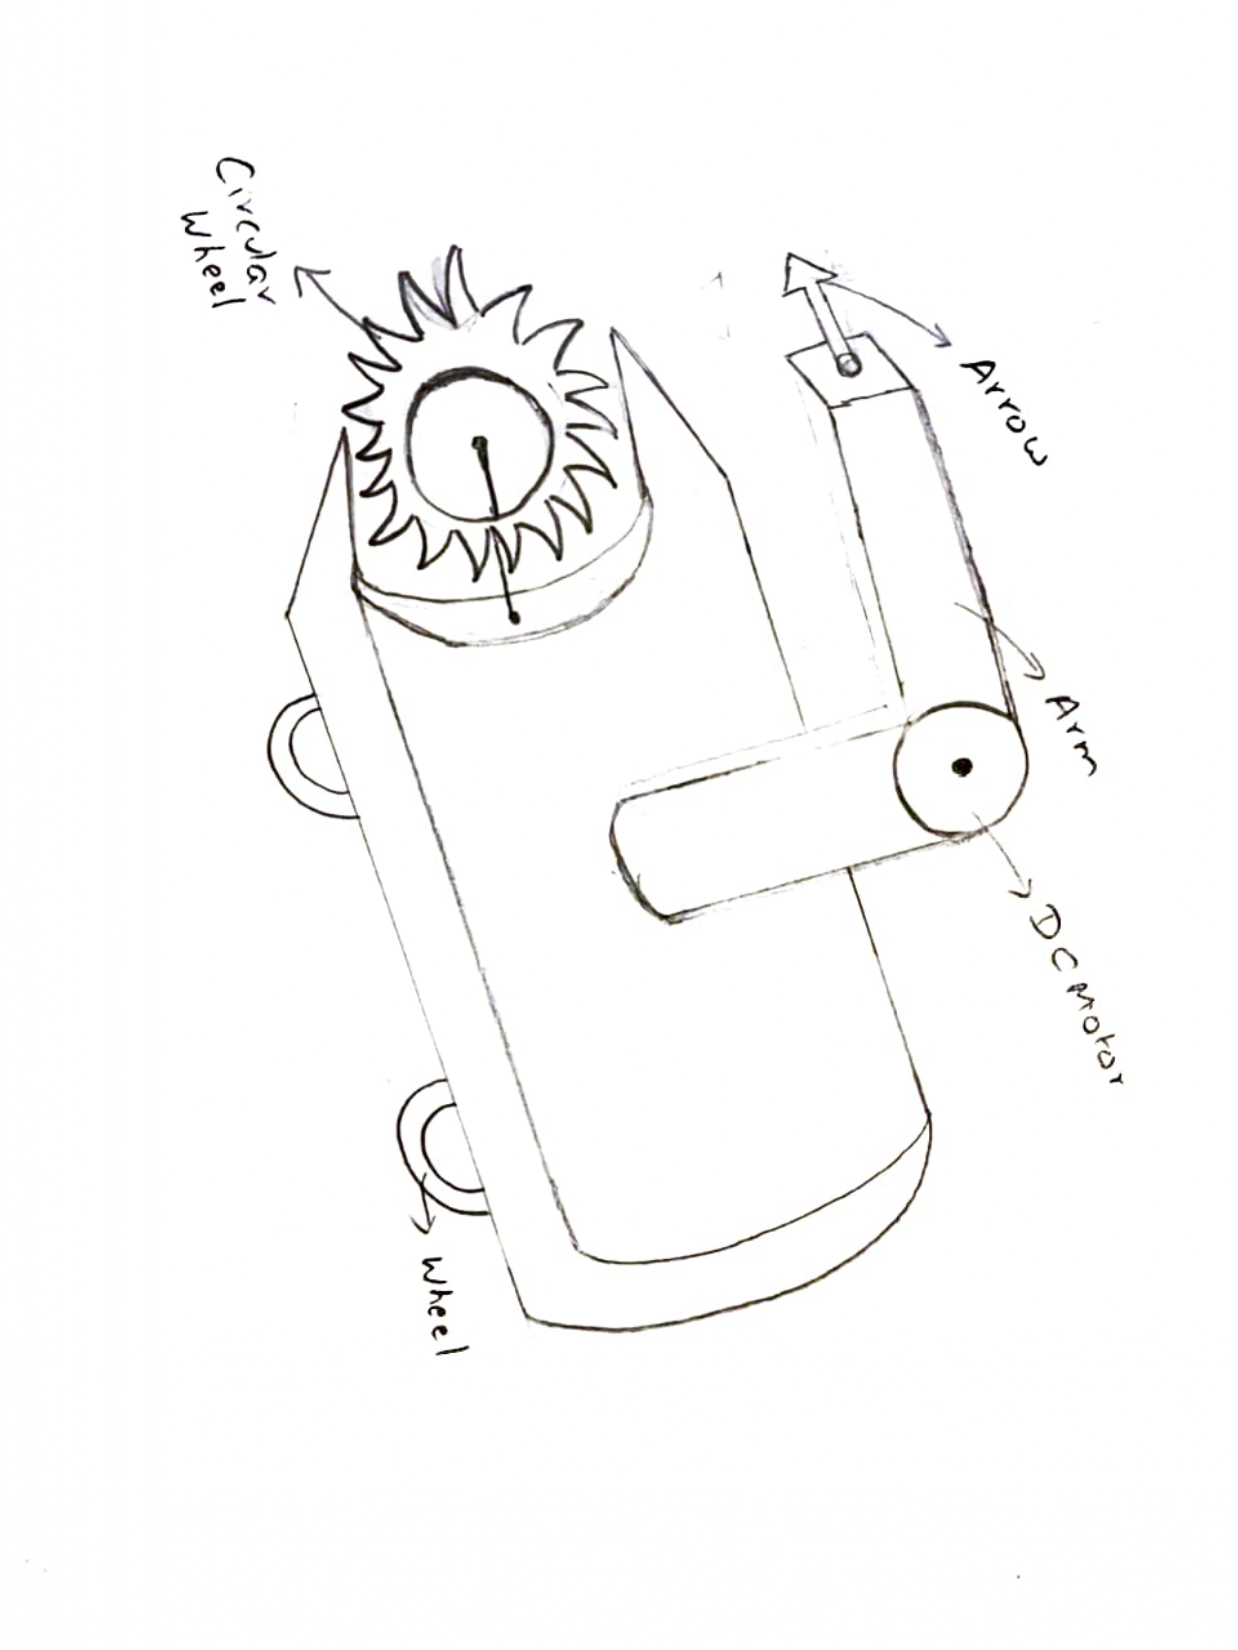 Arrow
Arm
DC Motor
Wheel
Circular
Wheel